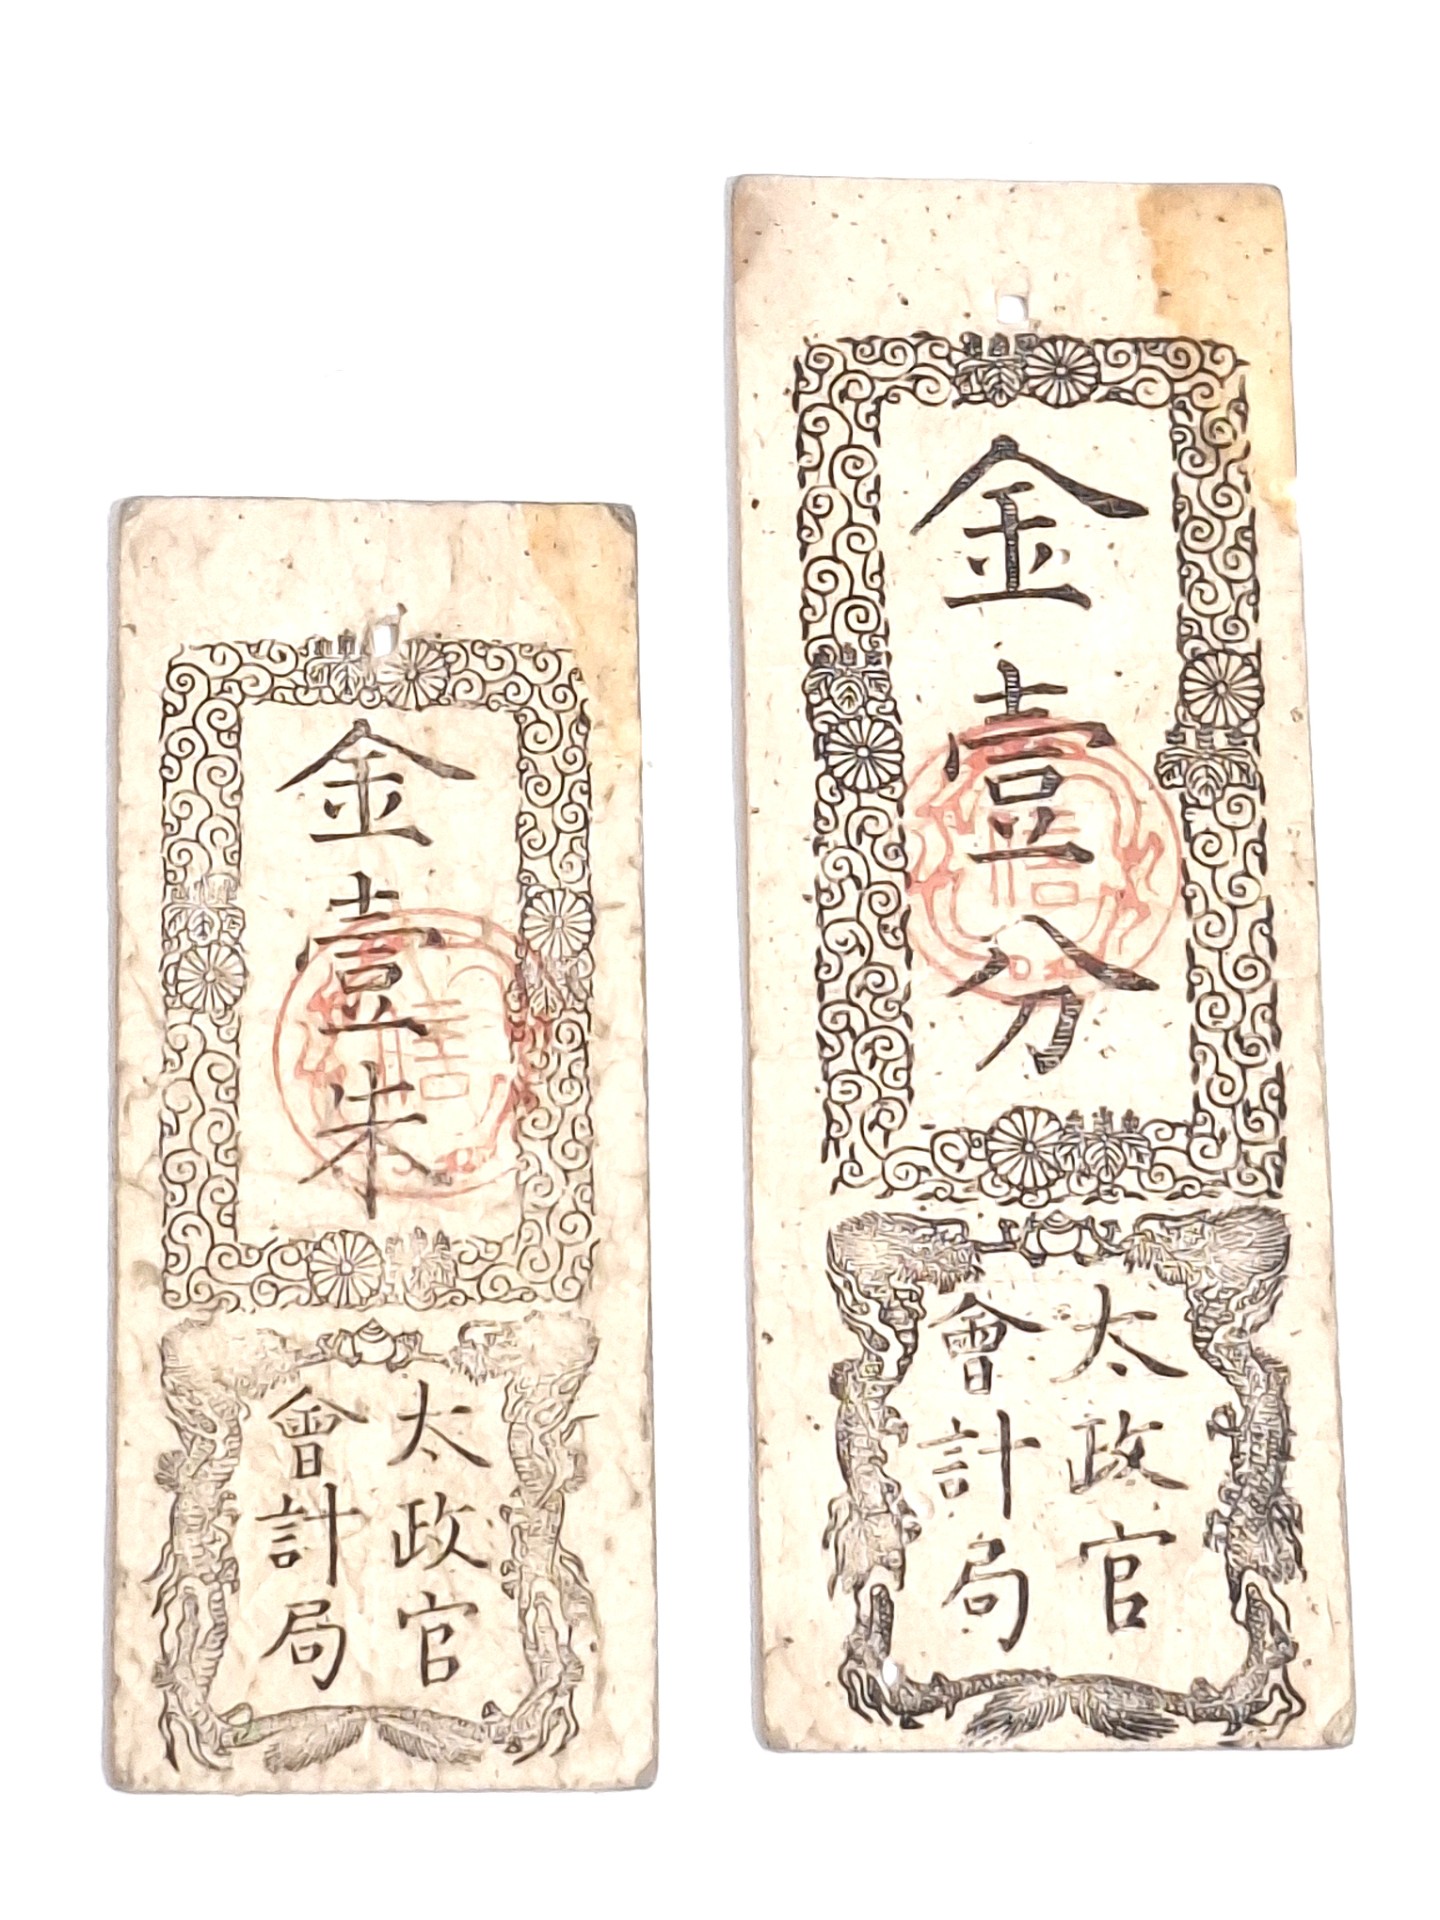 金壹朱
太政官
會計局
金壹分
太政官
會計局